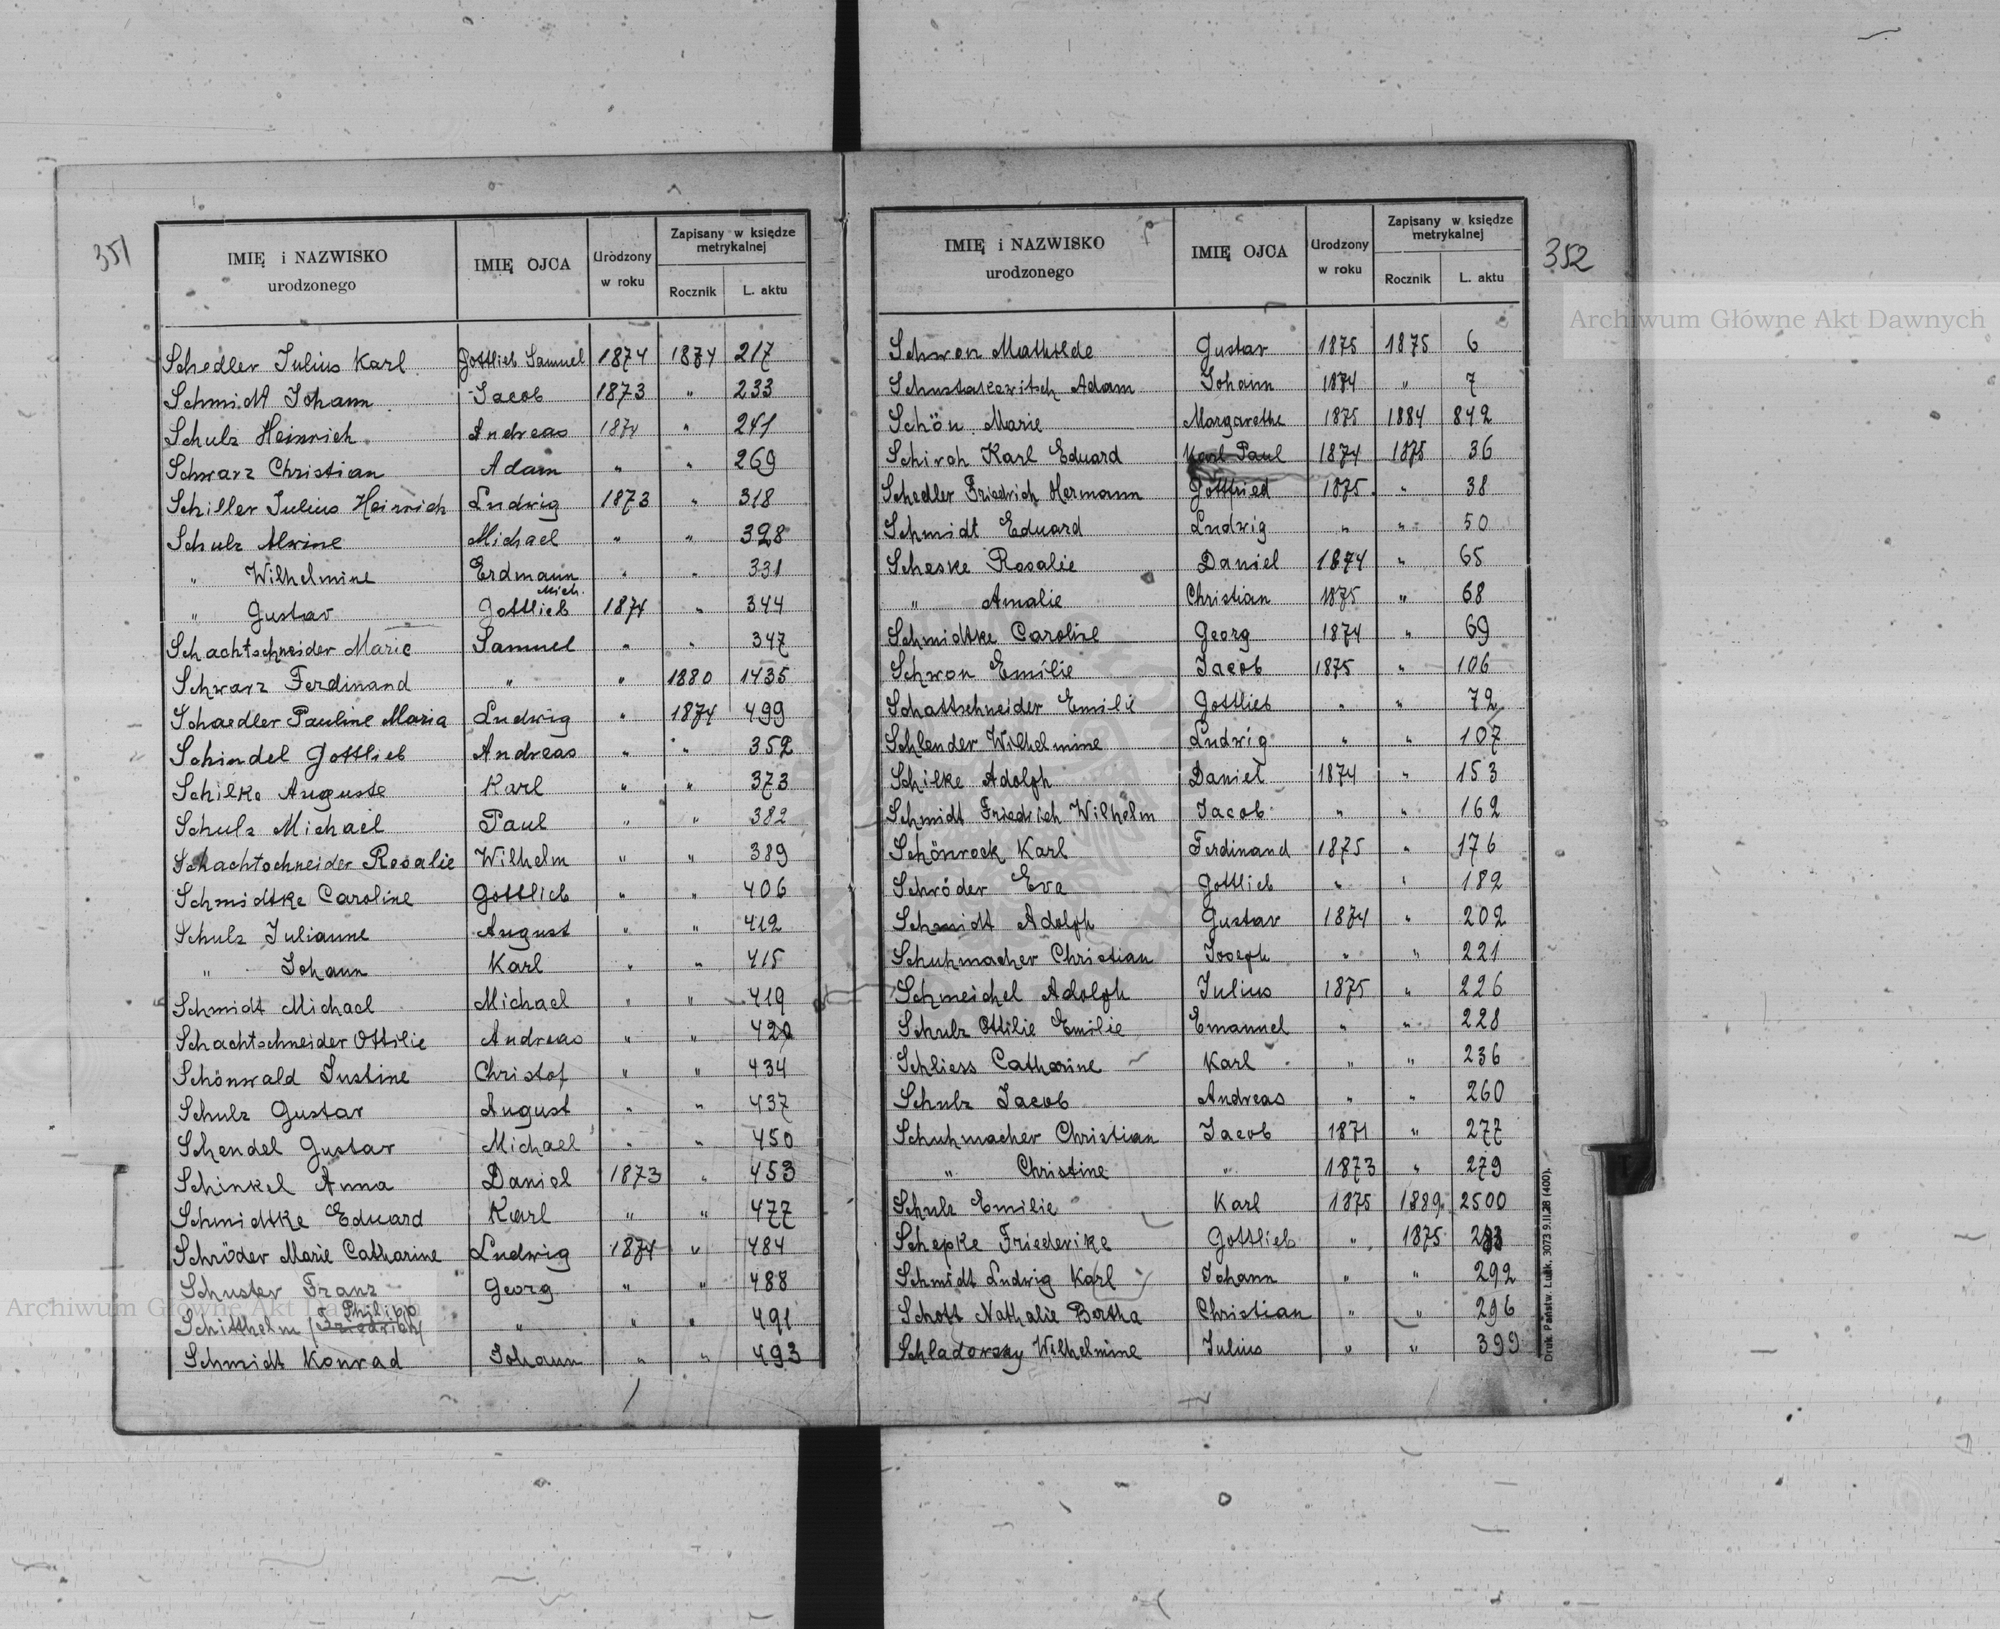 351
IMIĘ i NAZWISKO urodzonego IMIĘ OJCA Urodzony w roku Zapisany w księdze metrykalnej
Rocznik L. aktu
Schedler Julius Karl Gottlieb Samuel 1874 1874 217
Schmidt Johann Jacob 1873 " 233
Schulz Heinrich Andreas 1874 " 241
Schwarz Christian Adam " " 269
Schiller Julius Heinrich Ludwig 1873 " 318
Schulz Alwine Michael " " 328
" Wilhelmine Erdmann " " 331
" Gustav Gottlieb Mich. 1874 " 344
Schachtschneider Marie Samuel " " 347
Schwarz Ferdinand " " 1880 1435
Schaedler Pauline Maria Ludwig " 1874 499
Schindel Gottlieb Andreas " " 352
Schilke Auguste Karl " " 373
Schulz Michael Paul " " 382
Schachtschneider Rosalie Wilhelm " " 389
Schmidtke Caroline Gottlieb " " 406
Schulz Julianne August " " 412
" Johann Karl " " 415
Schmidt Michael Michael " " 419
Schachtschneider Ottilie Andreas " " 420
Schönwald Justine Christof " " 434
Schulz Gustav August " " 437
Schendel Gustav Michael " " 450
Schinkel Anna Daniel 1873 " 453
Schmidtke Eduard Karl " " 477
Schröder Marie Catharine Ludwig 1874 " 484
Schuster Franz Georg " " 488
Schitthelm Philipp (Friedrich) " " " 491
Schmidt Konrad Johann " " 493
352
IMIĘ i NAZWISKO urodzonego IMIĘ OJCA Urodzony w roku Zapisany w księdze metrykalnej
Rocznik L. aktu
Schwon Mathilde Gustav 1875 1875 6
Schustakewitsch Adam Johann 1874 " 7
Schön Marie Margarethe 1875 1884 842
Schiroh Karl Eduard Karl Paul 1874 1875 36
Schedler Friedrich Hermann Gottfried 1875 " 38
Schmidt Eduard Ludwig " " 50
Scheske Rosalie Daniel 1874 " 65
" Amalie Christian 1875 " 68
Schmidtke Caroline Georg 1874 " 69
Schwon Emilie Jacob 1875 " 106
Schattschneider Emilie Gottlieb " " 72
Schlender Wilhelmine Ludwig " " 107
Schilke Adolph Daniel 1874 " 153
Schmidt Friedrich Wilhelm Jacob " " 162
Schönrock Karl Ferdinand 1875 " 176
Schröder Eva Gottlieb " " 182
Schmidt Adolph Gustav 1874 " 202
Schuhmacher Christian Joseph " " 221
Schmeichel Adolph Julius 1875 " 226
Schulz Ottilie Emilie Emanuel " " 228
Schliess Catharine Karl " " 236
Schulz Jacob Andreas " " 260
Schuhmacher Christian Jacob 1871 " 277
" Christine " 1873 " 279
Schulz Emilie Karl 1875 1889 2500
Schepke Friederike Gottlieb " 1875 283
Schmidt Ludwig Karl Johann " " 292
Schott Nathalie Bertha Christian " " 296
Schladovsky Wilhelmine Julius " " 399
Druk. Państw. Łuck. 3073 9.II.28 (400).
Archiwum Główne Akt Dawnych
Archiwum Główne Akt Dawnych